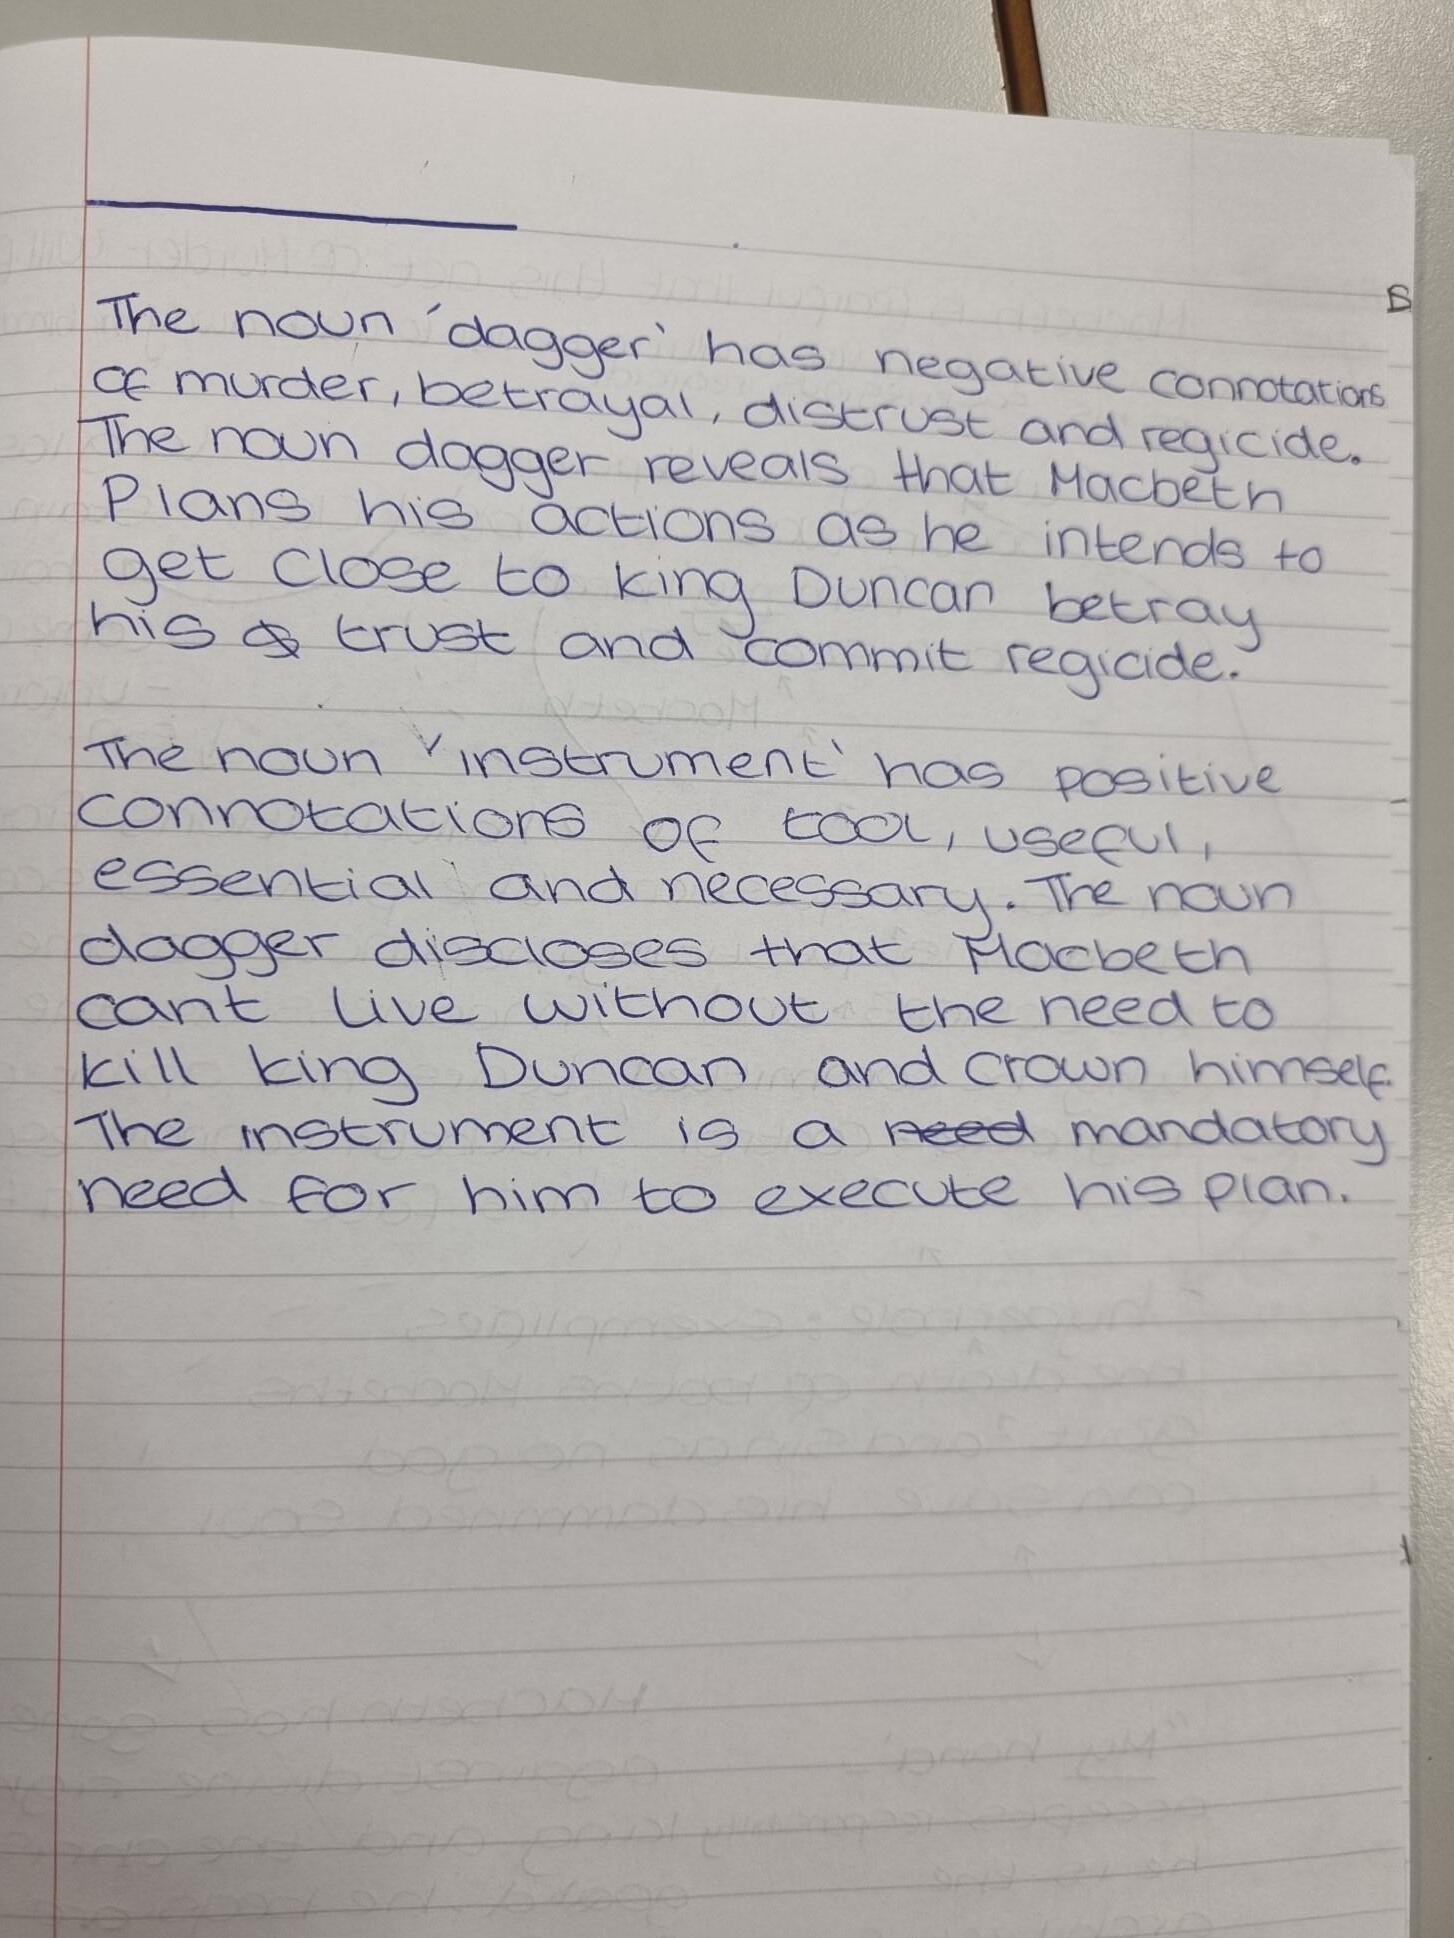 The noun 'dagger' has negative connotations
of murder, betrayal, distrust and regicide.
The noun dagger reveals that Macbeth
Plans his actions as he intends to
get close to king Duncan betray
his trust and commit regicide.
The noun 'instrument' has positive
connotations of tool, useful,
essential and necessary. The noun
dagger discloses that Macbeth
cant live without the need to
kill king Duncan and crown himself.
The instrument is a need mandatory
need for him to execute his plan.